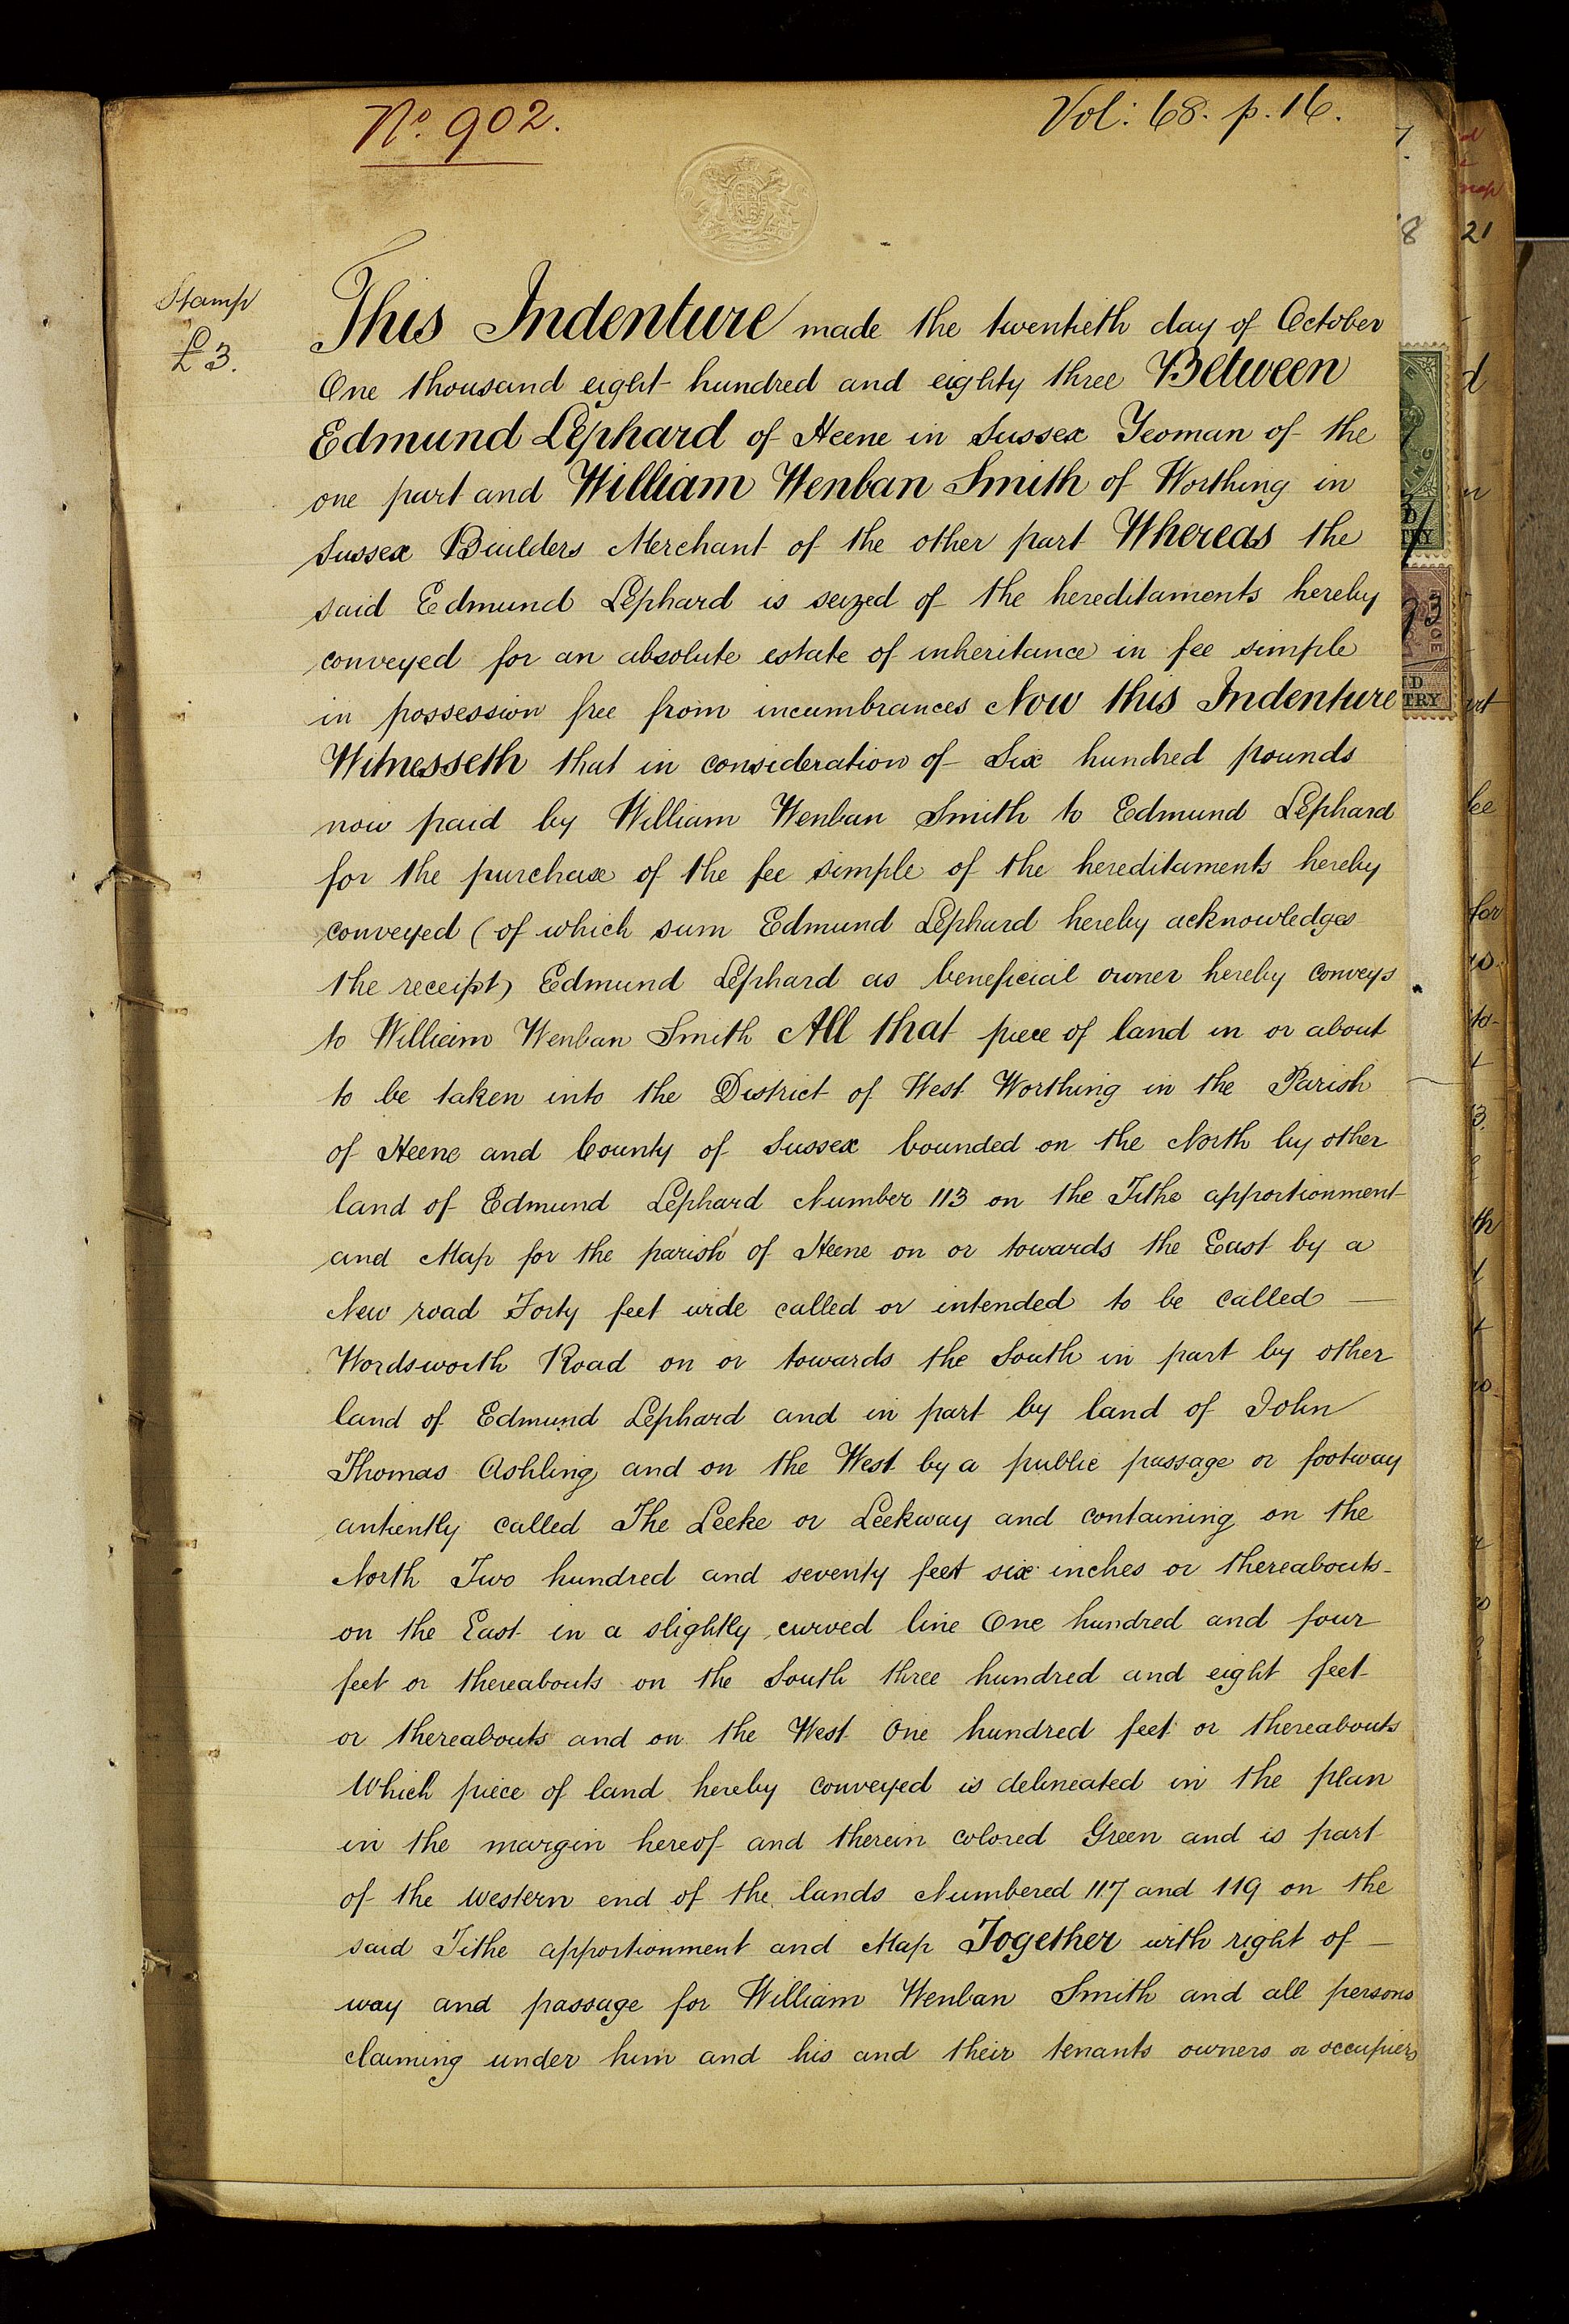 No. 902.
Vol: 68. p. 16.
Stamp
£3.
This Indenture made the twentieth day of October
One thousand eight hundred and eighty three Between
Edmund Lephard of Heene in Sussex Yeoman of the
one part and William Wenban Smith of Worthing in
Sussex Builders Merchant of the other part Whereas the
said Edmund Lephard is seized of the hereditaments hereby
conveyed for an absolute estate of inheritance in fee simple
in possession free from incumbrances Now this Indenture
Witnesseth that in consideration of Six hundred pounds
now paid by William Wenban Smith to Edmund Lephard
for the purchase of the fee simple of the hereditaments hereby
conveyed (of which sum Edmund Lephard hereby acknowledges
the receipt) Edmund Lephard as beneficial owner hereby conveys
to William Wenban Smith All that piece of land in or about
to be taken into the District of West Worthing in the Parish
of Heene and County of Sussex bounded on the North by other
land of Edmund Lephard Number 113 on the Tithe apportionment
and Map for the parish of Heene on or towards the East by a
New road Forty feet wide called or intended to be called —
Wordsworth Road on or towards the South in part by other
land of Edmund Lephard and in part by land of John
Thomas Ashling and on the West by a public passage or footway
antiently called The Leeke or Leekway and containing on the
North Two hundred and seventy feet six inches or thereabouts -
on the East in a slightly curved line One hundred and four
feet or thereabouts on the South three hundred and eight feet
or thereabouts and on the West One hundred feet or thereabouts
Which piece of land hereby conveyed is delineated in the plan
in the margin hereof and therein colored Green and is part
of the western end of the lands Numbered 117 and 119 on the
said Tithe apportionment and Map Together with right of —
way and passage for William Wenban Smith and all persons
claiming under him and his and their tenants owners or occupiers